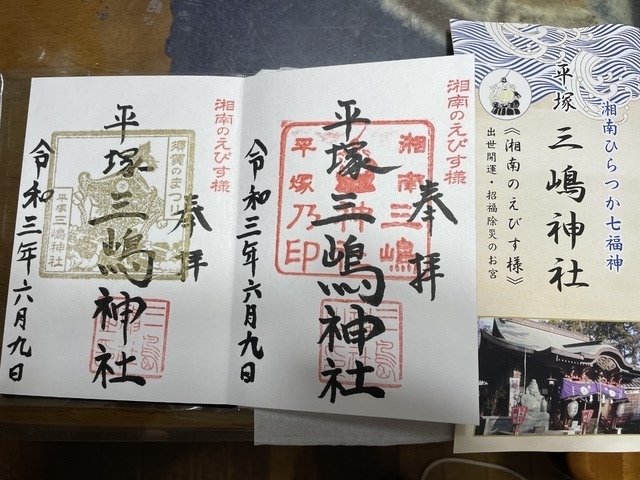 湘南のえびす様
奉拝
平塚三嶋神社
令和三年六月九日
須賀のまつり
平塚三嶋神社
湘南のえびす様
奉拝
平塚三嶋神社
令和三年六月九日
湘南三嶋
神
平塚乃印
湘南ひらつか七福神
平塚 三嶋神社
《湘南のえびす様》
出世開運・招福除災のお宮